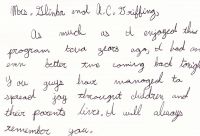 Mrs. Glinka and A.C. Griffing,
As much as I enjoyed this
program tova years ago, I had an
enn better two coming back tonigh
You guys have managed to
spread joy throught children and
their parents lives, I will always
remember you.